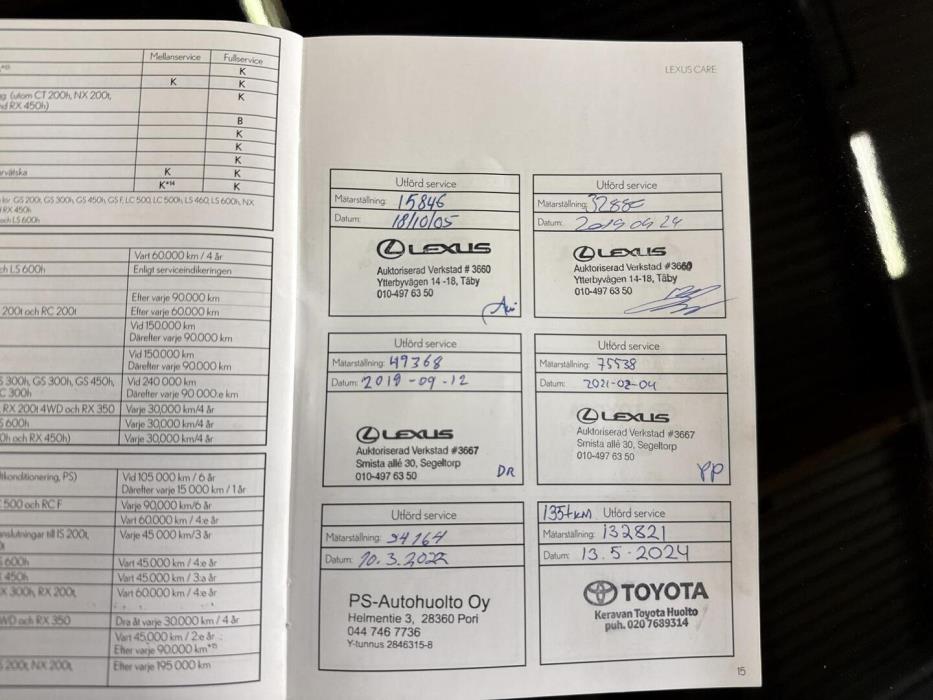 Mellanservice Fullservice
K
K K
g (utom CT 200h, NX 200t, K
nd RX 450h)
B
K
K
K
rvätska K K
K*14 K
för GS 200t, GS 300h, GS 450h, GS F, LC 500, LC 500h, LS 460, LS 600h, NX
RX 450h
och LS 600h
Vart 60.000 km / 4 år
ch LS 600h Enligt serviceindikeringen
Efter varje 90.000 km
200t och RC 200t Efter varje 60.000 km
Vid 150.000 km
Därefter varje 90.000 km
Vid 150.000 km
Därefter varje 90.000 km
S 300h, GS 300h, GS 450h, Vid 240 000 km
C 300h Därefter varje 90 000:e km
RX 200t 4WD och RX 350 Varje 30,000 km/4 år
S 600h Varje 30,000 km/4 år
0h och RX 450h) Varje 30,000 km/4 år
tkonditionering, PS) Vid 105 000 km / 6 år
Därefter varje 15 000 km / 1 år
500 och RC F Varje 90,000 km/6 år
Vart 60.000 km / 4:e år
anslutningar till IS 200t, Varje 45 000 km/3 år
600h Vart 45.000 km / 4:e år
450h Vart 45.000 km / 3:a år
X 300h, RX 200t, Vart 60.000 km / 4:e år
WD och RX 350 Dra åt varje 30.000 km / 4 år
Vart 45.000 km / 2:e år
Efter varje 90.000 km
S 200t, NX 200t, Efter varje 195 000 km
LEXUS CARE
Utförd service
Mätarställning: 15846
Datum: 18/10/05
LEXUS
Auktoriserad Verkstad # 3660
Ytterbyvägen 14 -18, Täby
010-497 63 50
Utförd service
Mätarställning: 32880
Datum: 2019 04 24
LEXUS
Auktoriserad Verkstad #3660
Ytterbyvägen 14-18, Täby
010-497 63 50
Utförd service
Mätarställning: 49368
Datum: 2019-09-12
LEXUS
Auktoriserad Verkstad #3667
Smista allé 30, Segeltorp
010-497 63 50
DR
Utförd service
Mätarställning: 75538
Datum: 2021-02-04
LEXUS
Auktoriserad Verkstad #3667
Smista allé 30, Segeltorp
010-497 63 50
PP
Utförd service
Mätarställning: 94164
Datum: 10.3.2022
PS-Autohuolto Oy
Helmentie 3, 28360 Pori
044 746 7736
Y-tunnus 2846315-8
135tkm Utförd service
Mätarställning: 132821
Datum: 13.5-2024
TOYOTA
Keravan Toyota Huolto
puh. 020 7689314
15